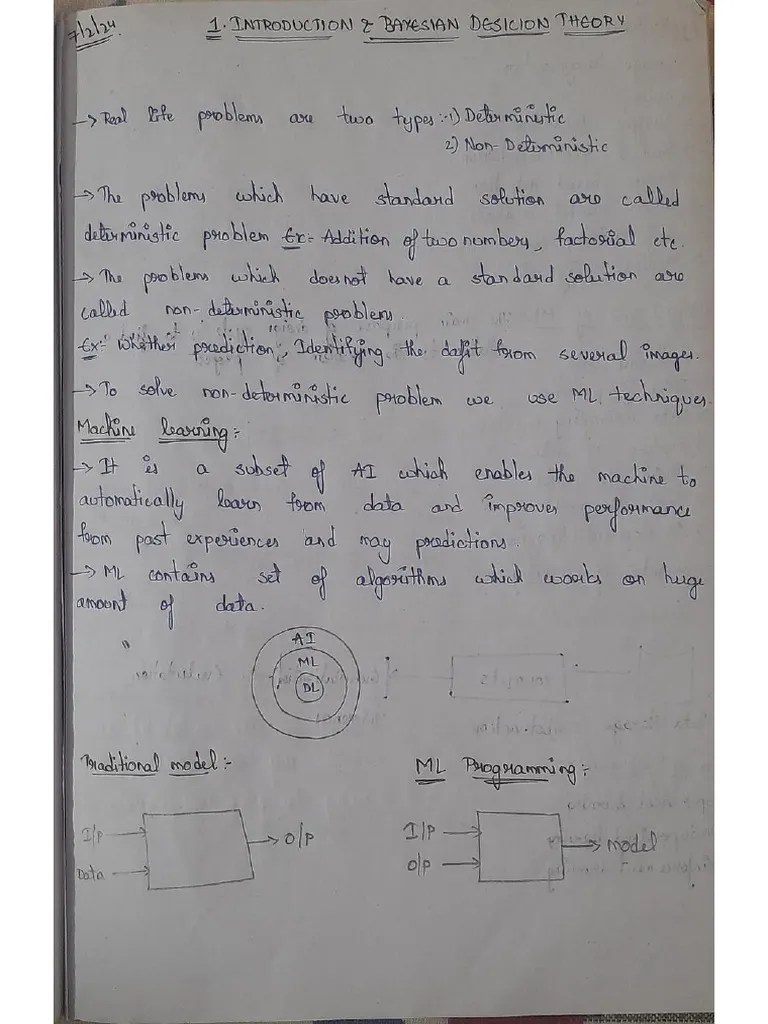 7/2/24
1. INTRODUCTION & BAYESIAN DESICION THEORY
→ Real life problems are two types :- 1) Deterministic
2) Non-Deterministic
→ The problems which have standard solution are called
deterministic problem Ex:- Addition of two numbers, factorial etc.
→ The problems which doesnot have a standard solution are
called non-deterministic problems.
Ex:- Whether prediction, Identifying the from several images.
→ To solve non-deterministic problem we use ML techniques.
Machine learning :-
→ It is a subset of AI which enables the machine to
automatically learn from data and improves performance
from past experiences and may predictions.
→ ML contains set of algorithms which works on huge
amount of data.
AI
ML
DL
Traditional model :-
ML Programming :-
I/P → → O/P
Data →
I/P → → model
O/P →